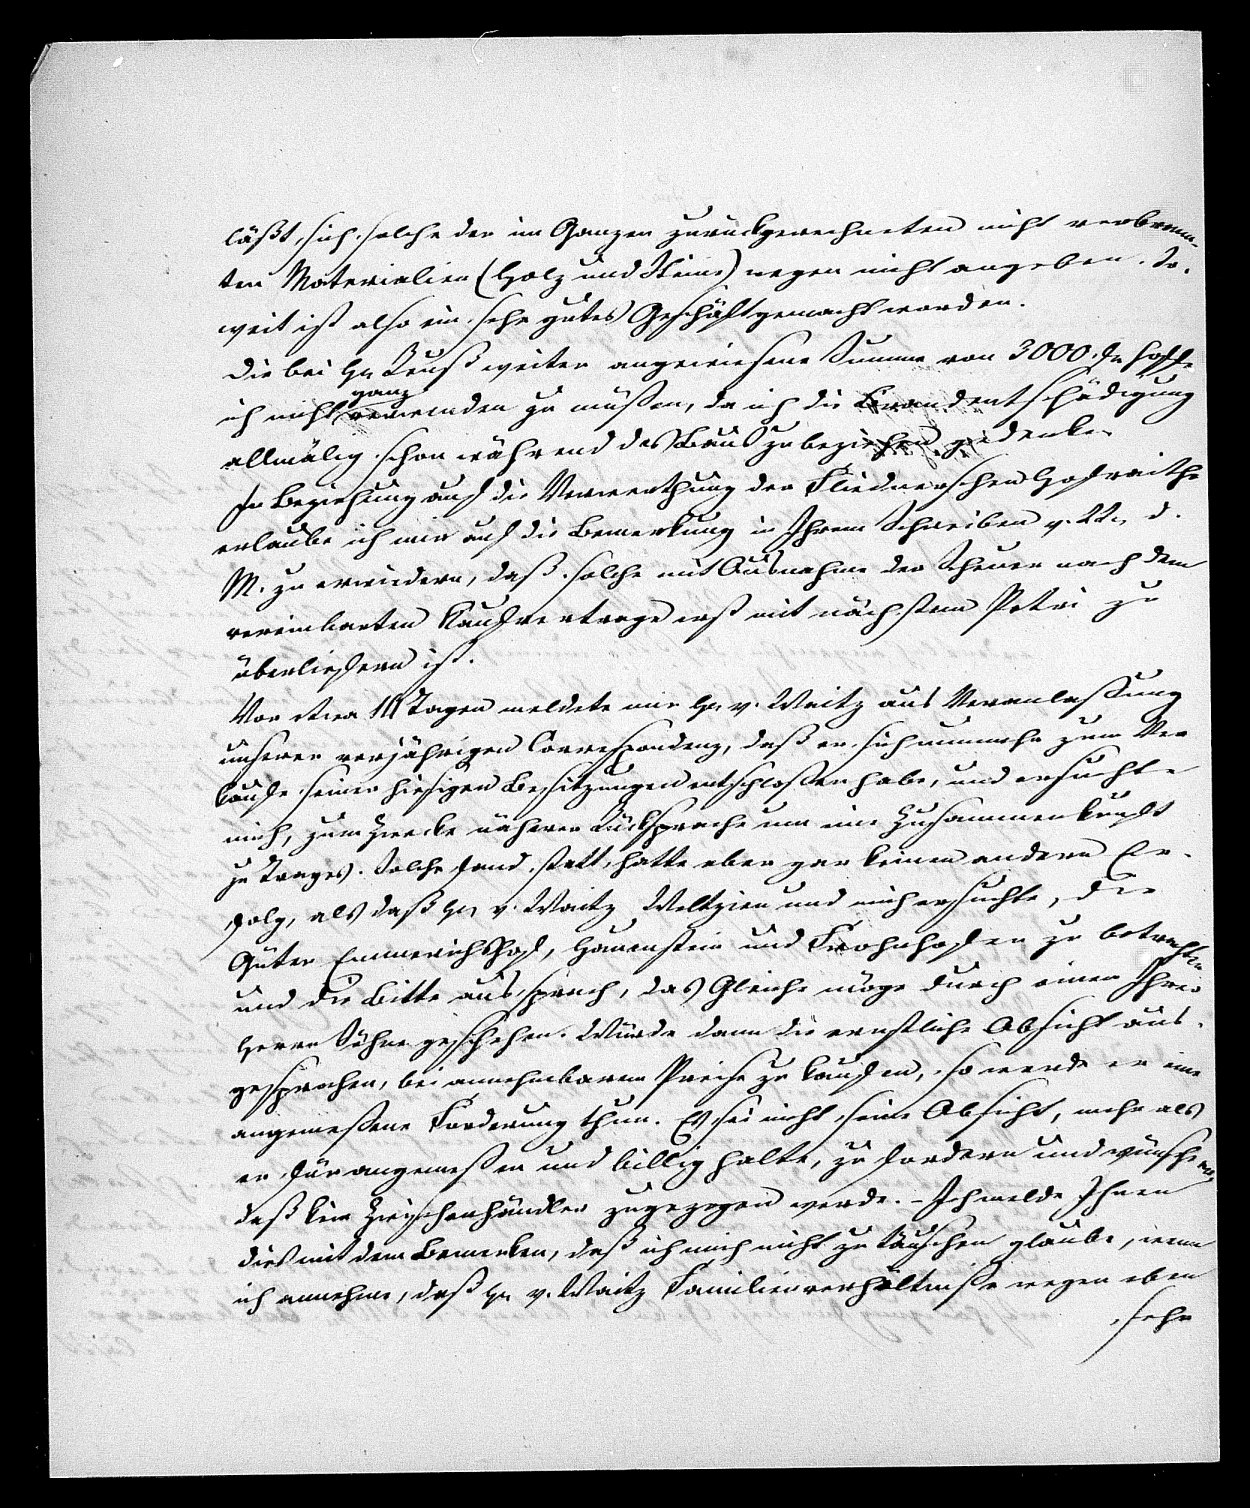 läßt sich solche der im Ganzen zurückgerechneten nicht verbrann-
ten Materialien (Holz und Steine) wegen nicht angeben. So-
weit ist also ein sehr gutes Geschäft gemacht worden.
Die bei Hn Reuß weiter angewiesene Summe von 3000. fr hoffe
ganz
ich nicht verwenden zu müßen, da ich die Brandentschädigung
allmälig schon während des Baus zu beziehen gedenke.
In Beziehung auf die Verwerthung der Fliednerschen Hofraithe
erlaube ich mir auf die Bemerkung in Ihrem Schreiben v. 22. d.
M. zu erwiedern, daß solche mit Ausnahme der Scheuer nach dem
vereinbarten Kaufvertrage erst mit nächstem Petri zu
überliefern ist.
Vor etwa 10 Tagen meldete mir Hr. v. Waitz aus Veranlaßung
unserer vorjährigen Correspondenz, daß er sich nunmehr zum Ver
kaufe seiner hiesigen Besitzungen entschloßen habe, und ersuchte
mich, zum Zwecke näherer Rücksprache um eine Zusammenkunft
zu Trages. Solche fand statt, hatte aber gar keinen andern Er-
folg, als daß Hr. v. Waitz Weltzien und mich ersuchte, die
Güter Emmerichshof, Hauenstein und Frohnhofen zu betrachten
und die Bitte aussprach, das Gleiche möge durch einen Ihrer
Herrn Söhne geschehen. Würde dann die ernstliche Absicht aus-
gesprochen, bei annehmbarem Preise zu kaufen, so werde er eine
angemeßene Forderung thun. Es sei nicht seine Absicht, mehr als
er für angemeßen und billig halte, zu fordern und wünsche nur,
daß kein Zwischenhändler zugezogen werde. – Ich melde Ihnen
dies mit dem Bemerken, daß ich mich nicht zu täuschen glaube, wenn
ich annehme, daß Hr. v. Waitz Familienverhältniße wegen eben
sehr